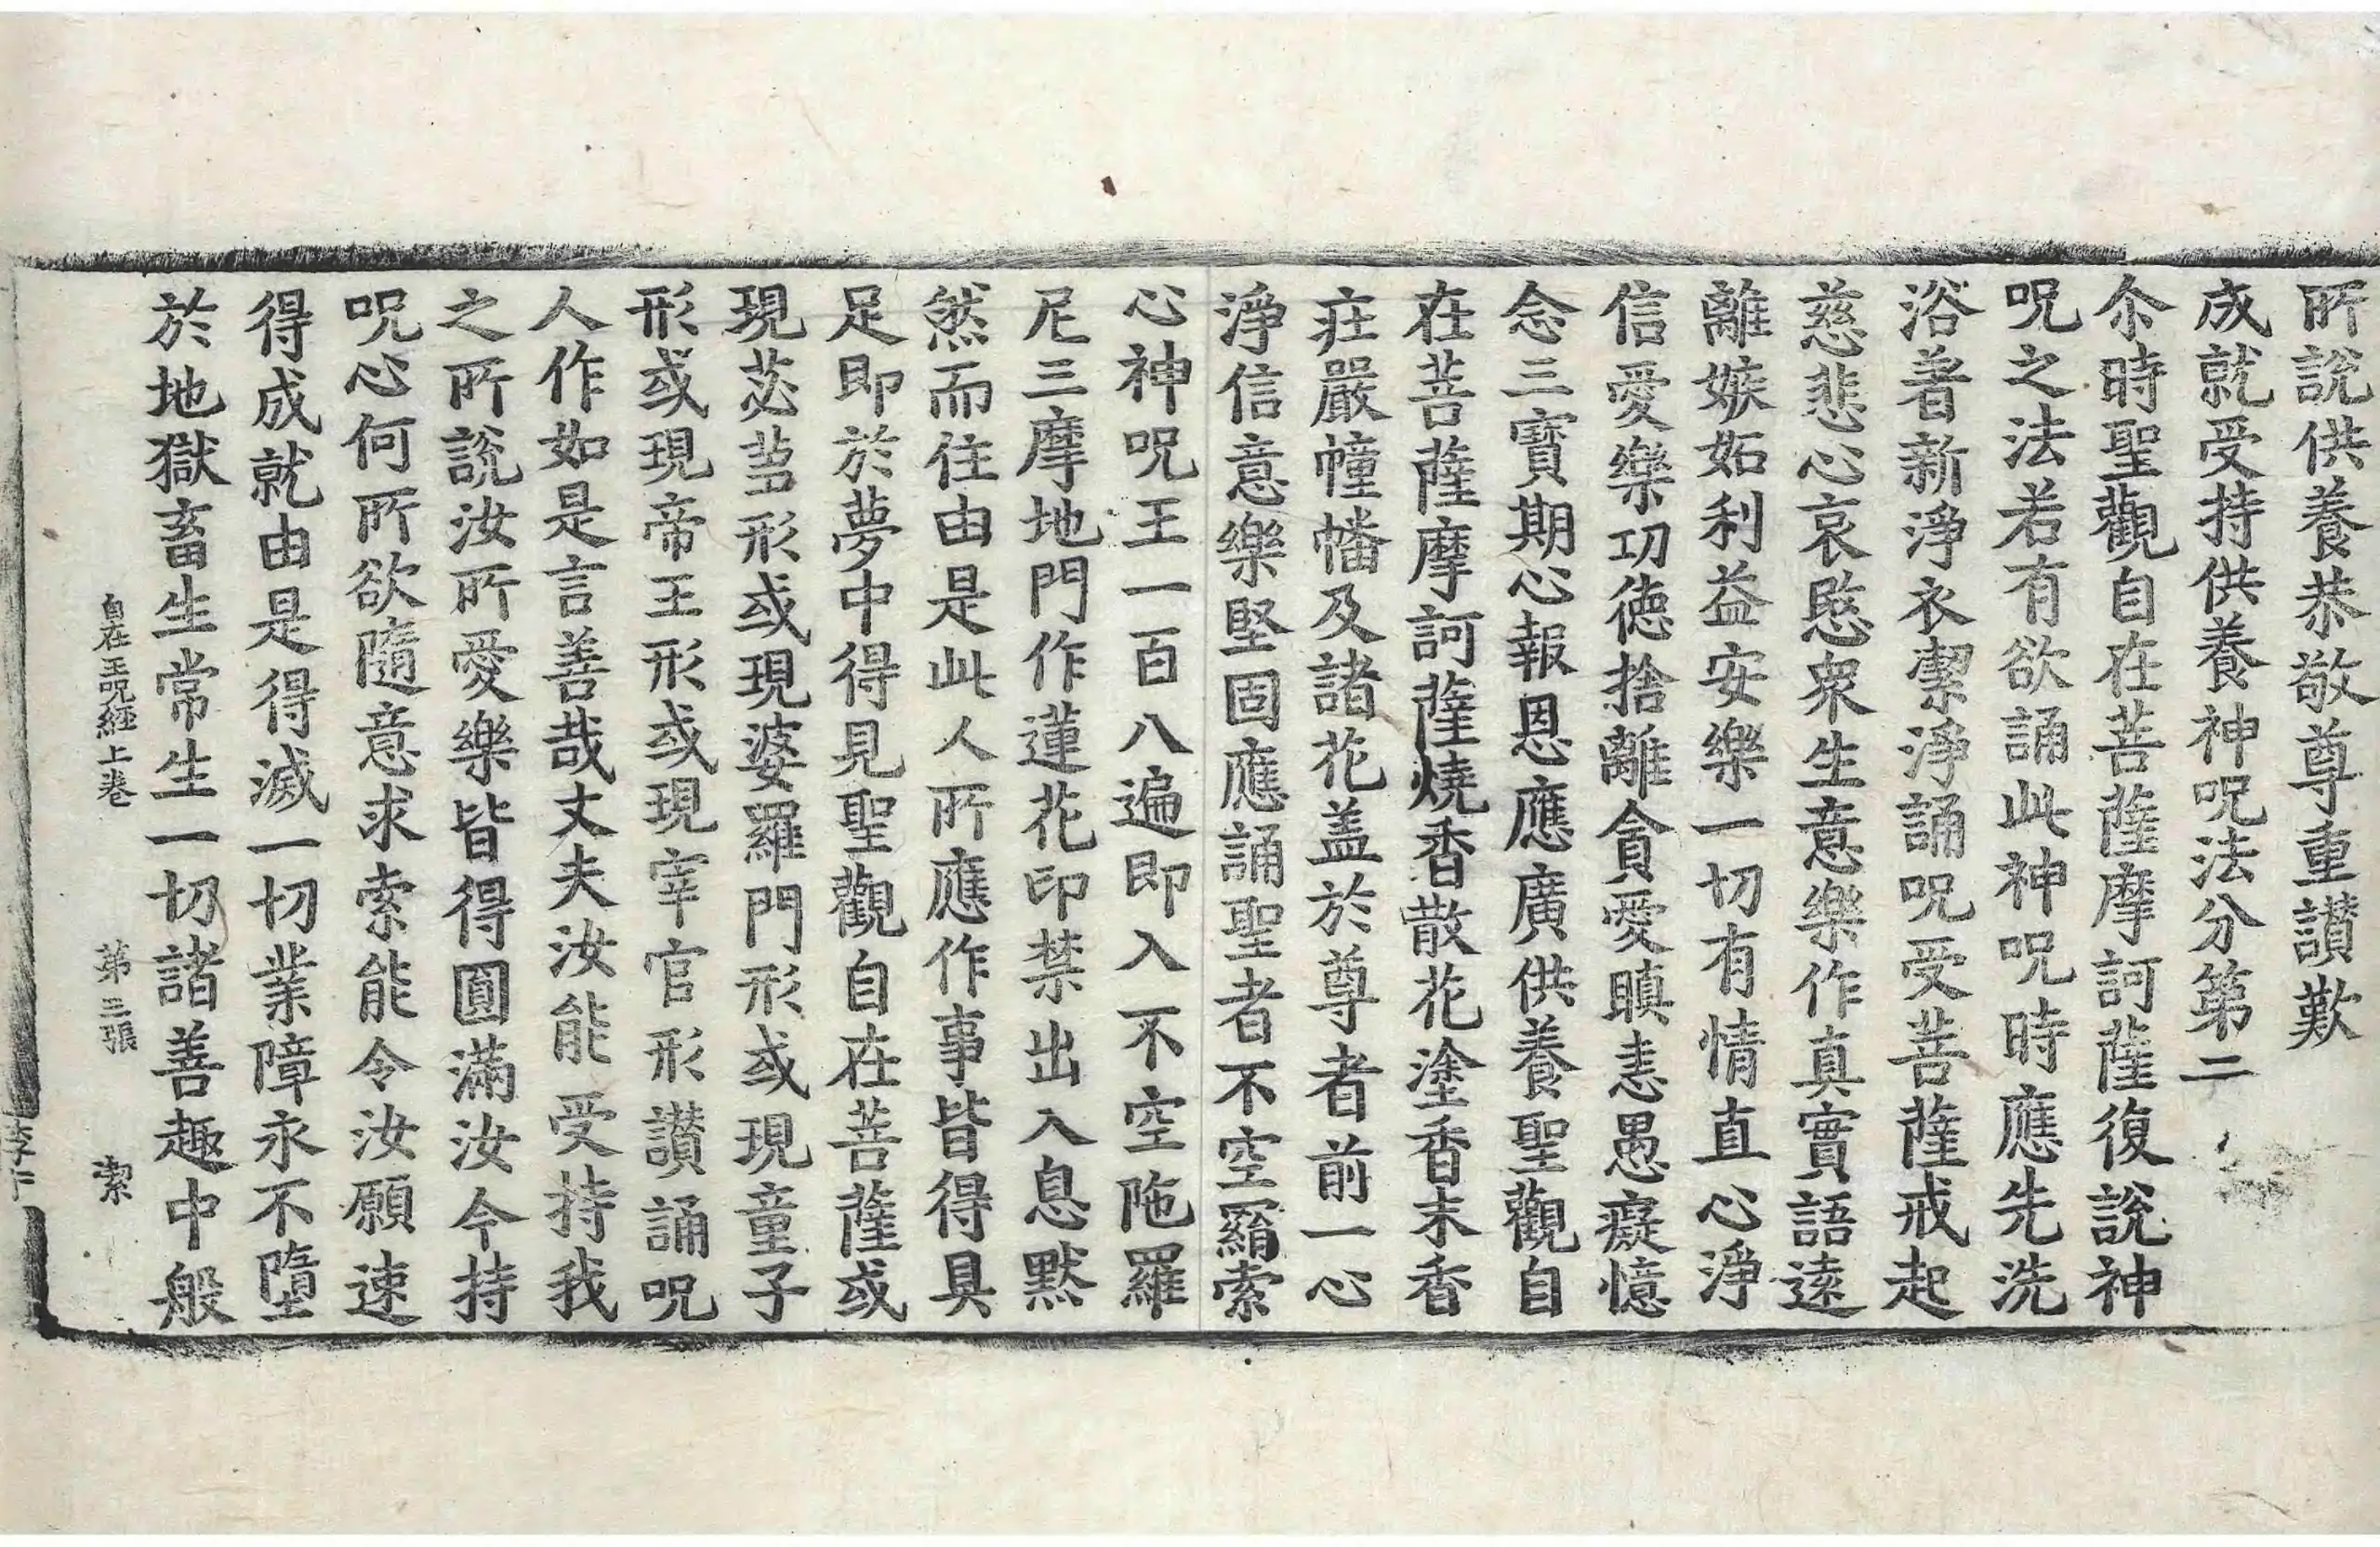 所說供養恭敬尊重讃歎
成就受持供養神呪法分第二
尒時聖觀自在菩薩摩訶薩復說神
呪之法若有欲誦此神呪時應先洗
浴著新淨衣潔淨誦呪受菩薩戒起
慈悲心哀愍衆生意樂作真實語遠
離嫉妬利益安樂一切有情直心淨
信愛樂功德捨離貪愛瞋恚愚癡憶
念三寶期心報恩應廣供養聖觀自
在菩薩摩訶薩燒香散花塗香末香
莊嚴幢幡及諸花盖於尊者前一心
淨信意樂堅固應誦聖者不空羂索
心神呪王一百八遍即入不空陁羅
尼三摩地門作蓮花印禁出入息默
然而住由是此人所應作事皆得具
足即於夢中得見聖觀自在菩薩或
現苾蒭形或現婆羅門形或現童子
形或現帝王形或現宰官形讃誦呪
人作如是言善哉丈夫汝能受持我
之所說汝所愛樂皆得圓滿汝今持
呪心何所欲隨意求索能令汝願速
得成就由是得滅一切業障永不墮
於地獄畜生常生一切諸善趣中般
自在王呪經上卷 第三張 潔